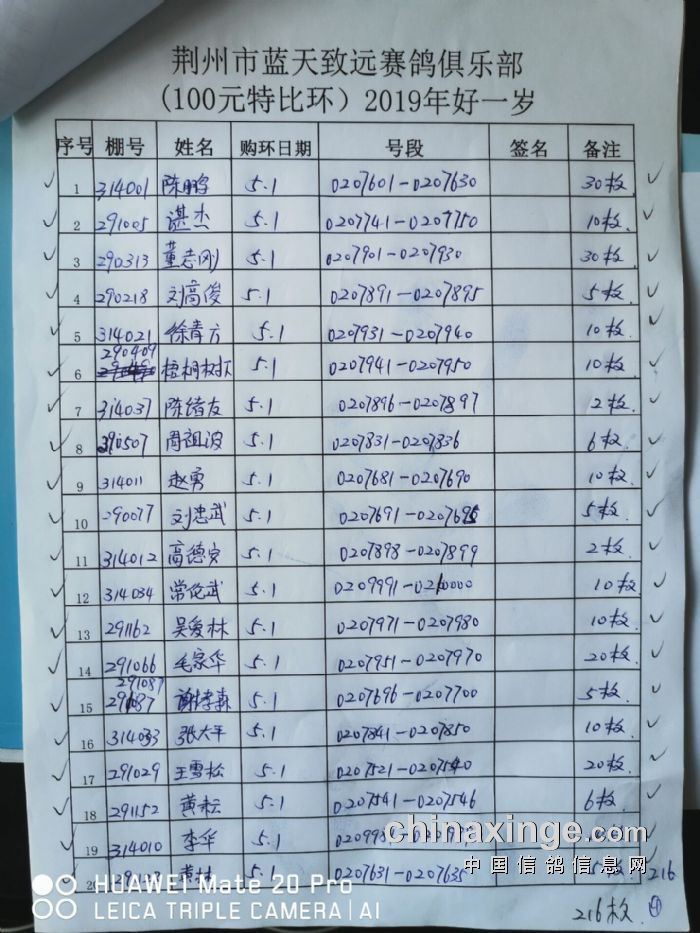 荆州市蓝天致远赛鸽俱乐部
(100元特比环) 2019年好一岁
序号 棚号 姓名 购环日期 号段 签名 备注
1 314001 陈鹏 5.1 0207601-0207630 30枚
2 291005 谌杰 5.1 0207741-0207750 10枚
3 290313 董志刚 5.1 0207901-0207930 30枚
4 290218 刘高俊 5.1 0207891-0207895 5枚
5 314021 徐青方 5.1 0207931-0207940 10枚
6 290409 梧桐 5.1 0207941-0207950 10枚
7 314037 陈绪友 5.1 0207896-0207897 2枚
8 290507 周祖波 5.1 0207831-0207836 6枚
9 314011 赵勇 5.1 0207681-0207690 10枚
10 290077 刘忠武 5.1 0207691-0207695 5枚
11 314012 高德安 5.1 0207898-0207899 2枚
12 314034 常伦武 5.1 0209991-0210000 10枚
13 291162 吴爱林 5.1 0207971-0207980 10枚
14 291066 毛家华 5.1 0207951-0207970 20枚
15 291087 谢孝森 5.1 0207696-0207700 5枚
16 314033 张大平 5.1 0207841-0207850 10枚
17 291029 王雪松 5.1 0207521-0207540 20枚
18 291152 黄耘 5.1 0207541-0207546 6枚
19 314010 李华 5.1
20 5.1 0207631-0207635 5枚 216
216枚
chinaxinge.com
中国信鸽信息网
HUAWEI Mate 20 Pro
LEICA TRIPLE CAMERA | AI